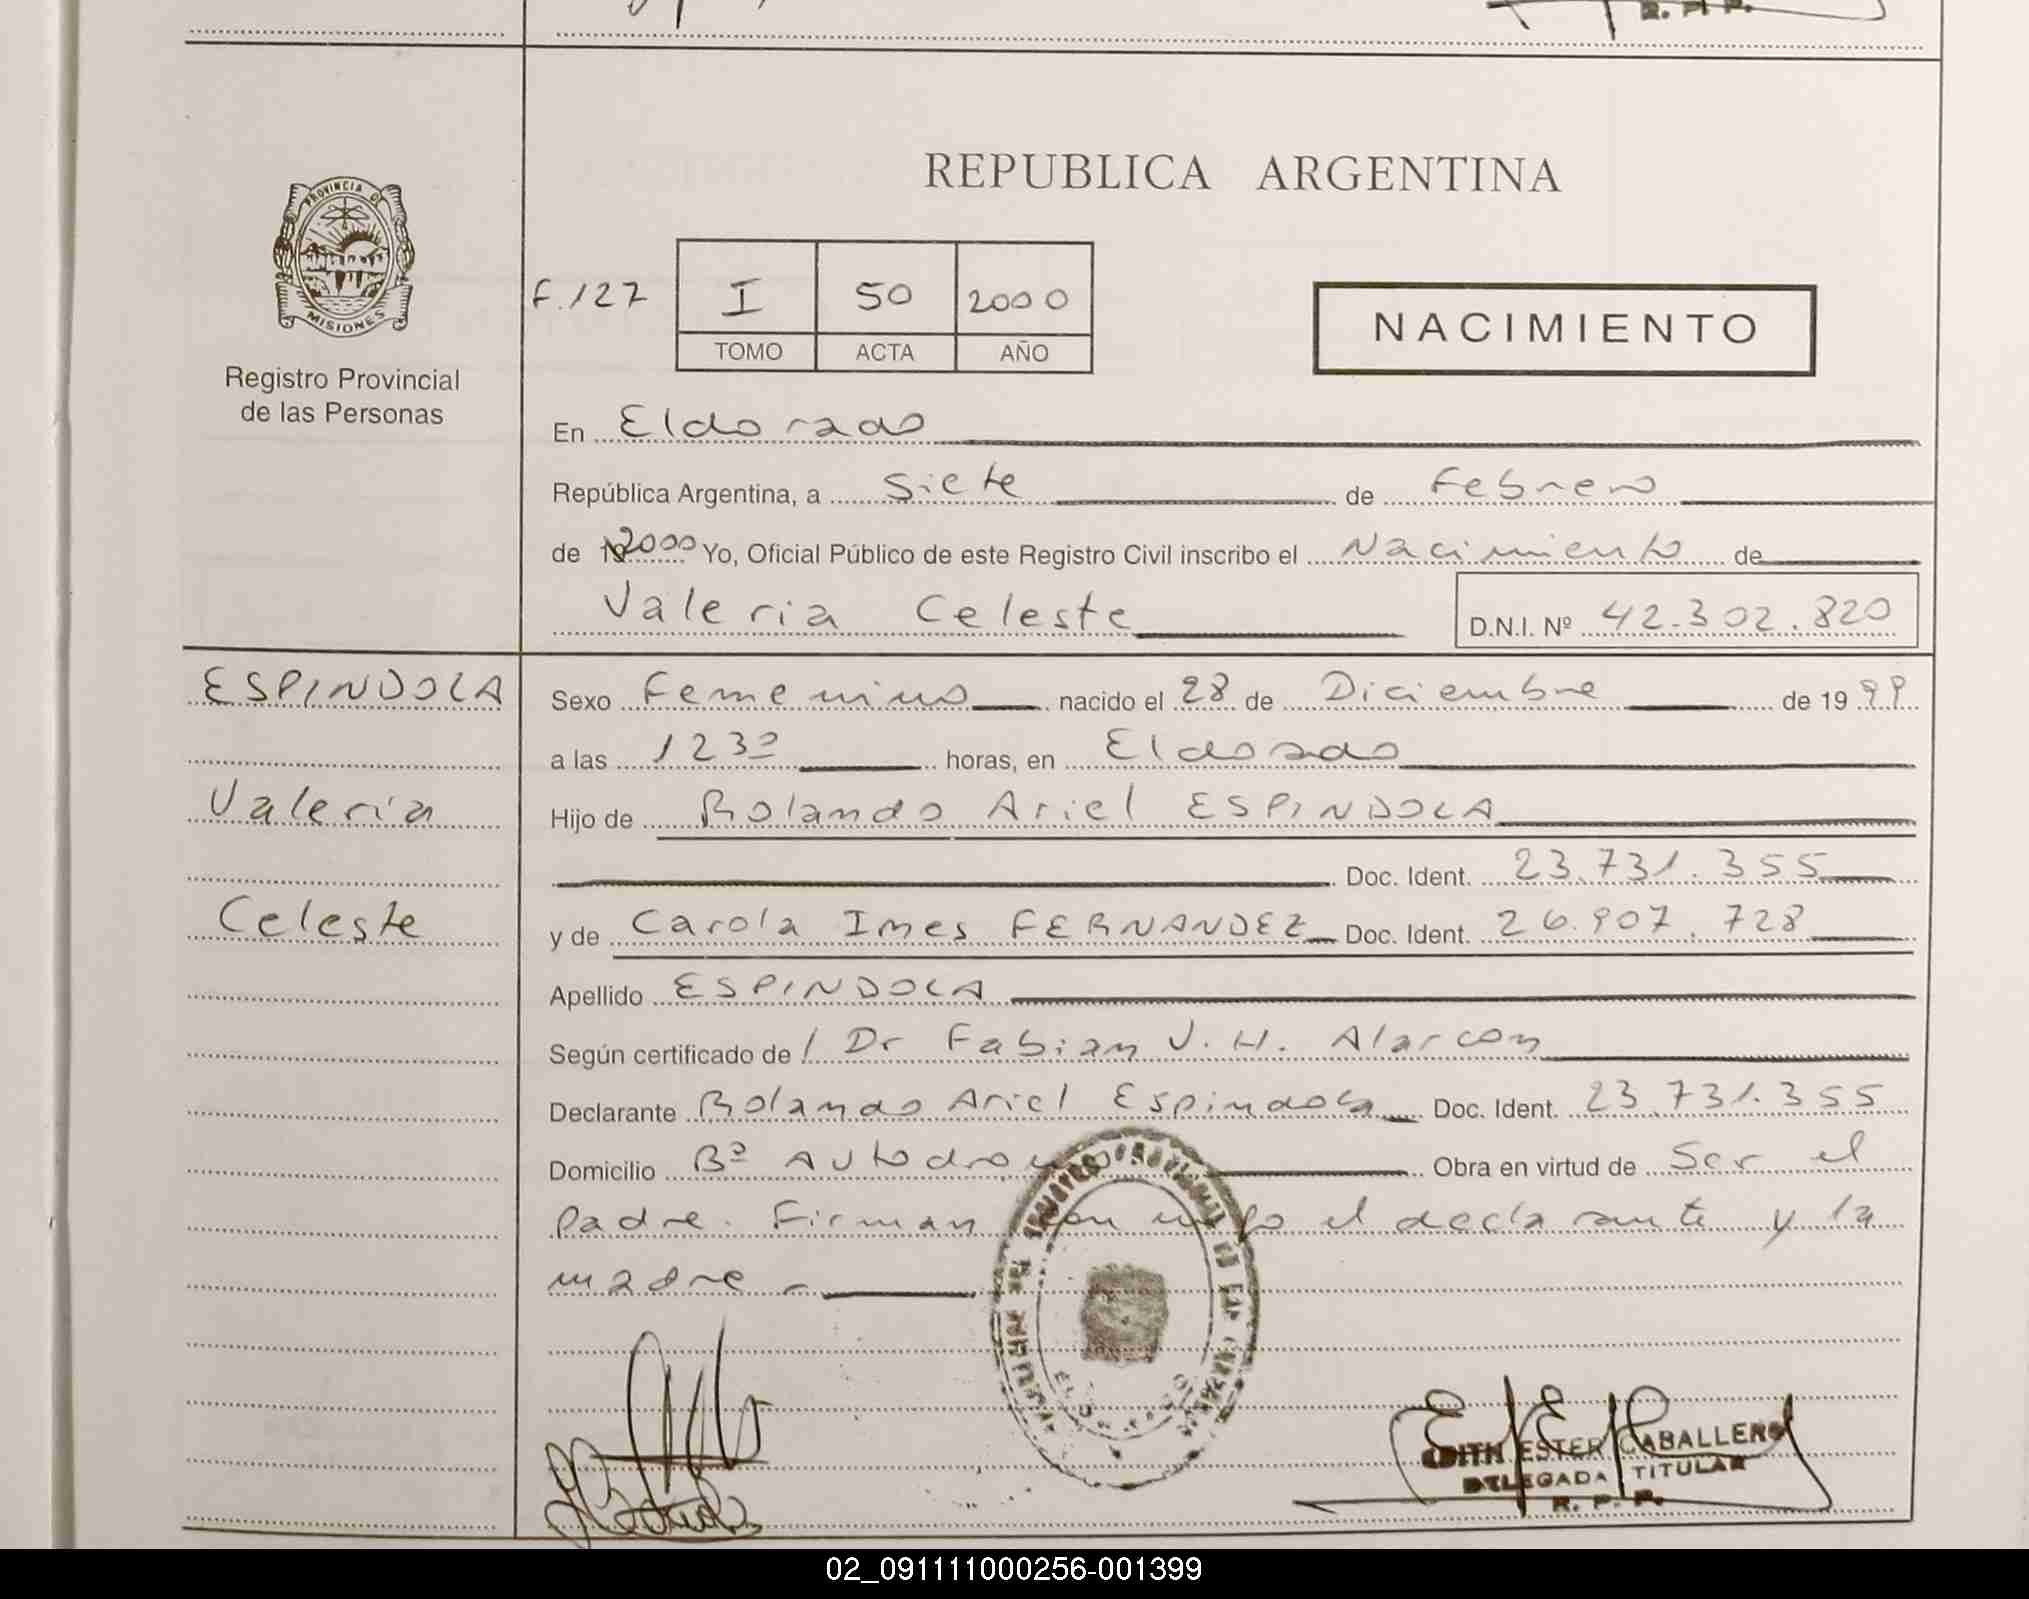 R. P. P.
PROVINCIA DE
MISIONES
Registro Provincial
de las Personas
REPUBLICA ARGENTINA
F.127
I 50 2000
TOMO ACTA AÑO
NACIMIENTO
En Eldorado
República Argentina, a Siete de Febrero
de 2000 Yo, Oficial Público de este Registro Civil inscribo el Nacimiento de
Valeria Celeste D.N.I. Nº 42.302.820
ESPINDOLA
Valeria
Celeste
Sexo Femenino nacido el 28 de Diciembre de 1999
a las 1230 horas, en Eldorado
Hijo de Rolando Ariel ESPINDOLA
Doc. Ident. 23.731.355
y de Carola Ines FERNANDEZ Doc. Ident. 26.907.728
Apellido ESPINDOLA
Según certificado de / Dr Fabian J. H. Alarcon
Declarante Rolando Ariel Espindola Doc. Ident. 23.731.355
Domicilio Bº Autodromo Obra en virtud de Ser el
padre. Firman conmigo el declarante y la
madre -
EDITH ESTER CABALLERO
DELEGADA TITULAR
R. P. P.
02_091111000256-001399